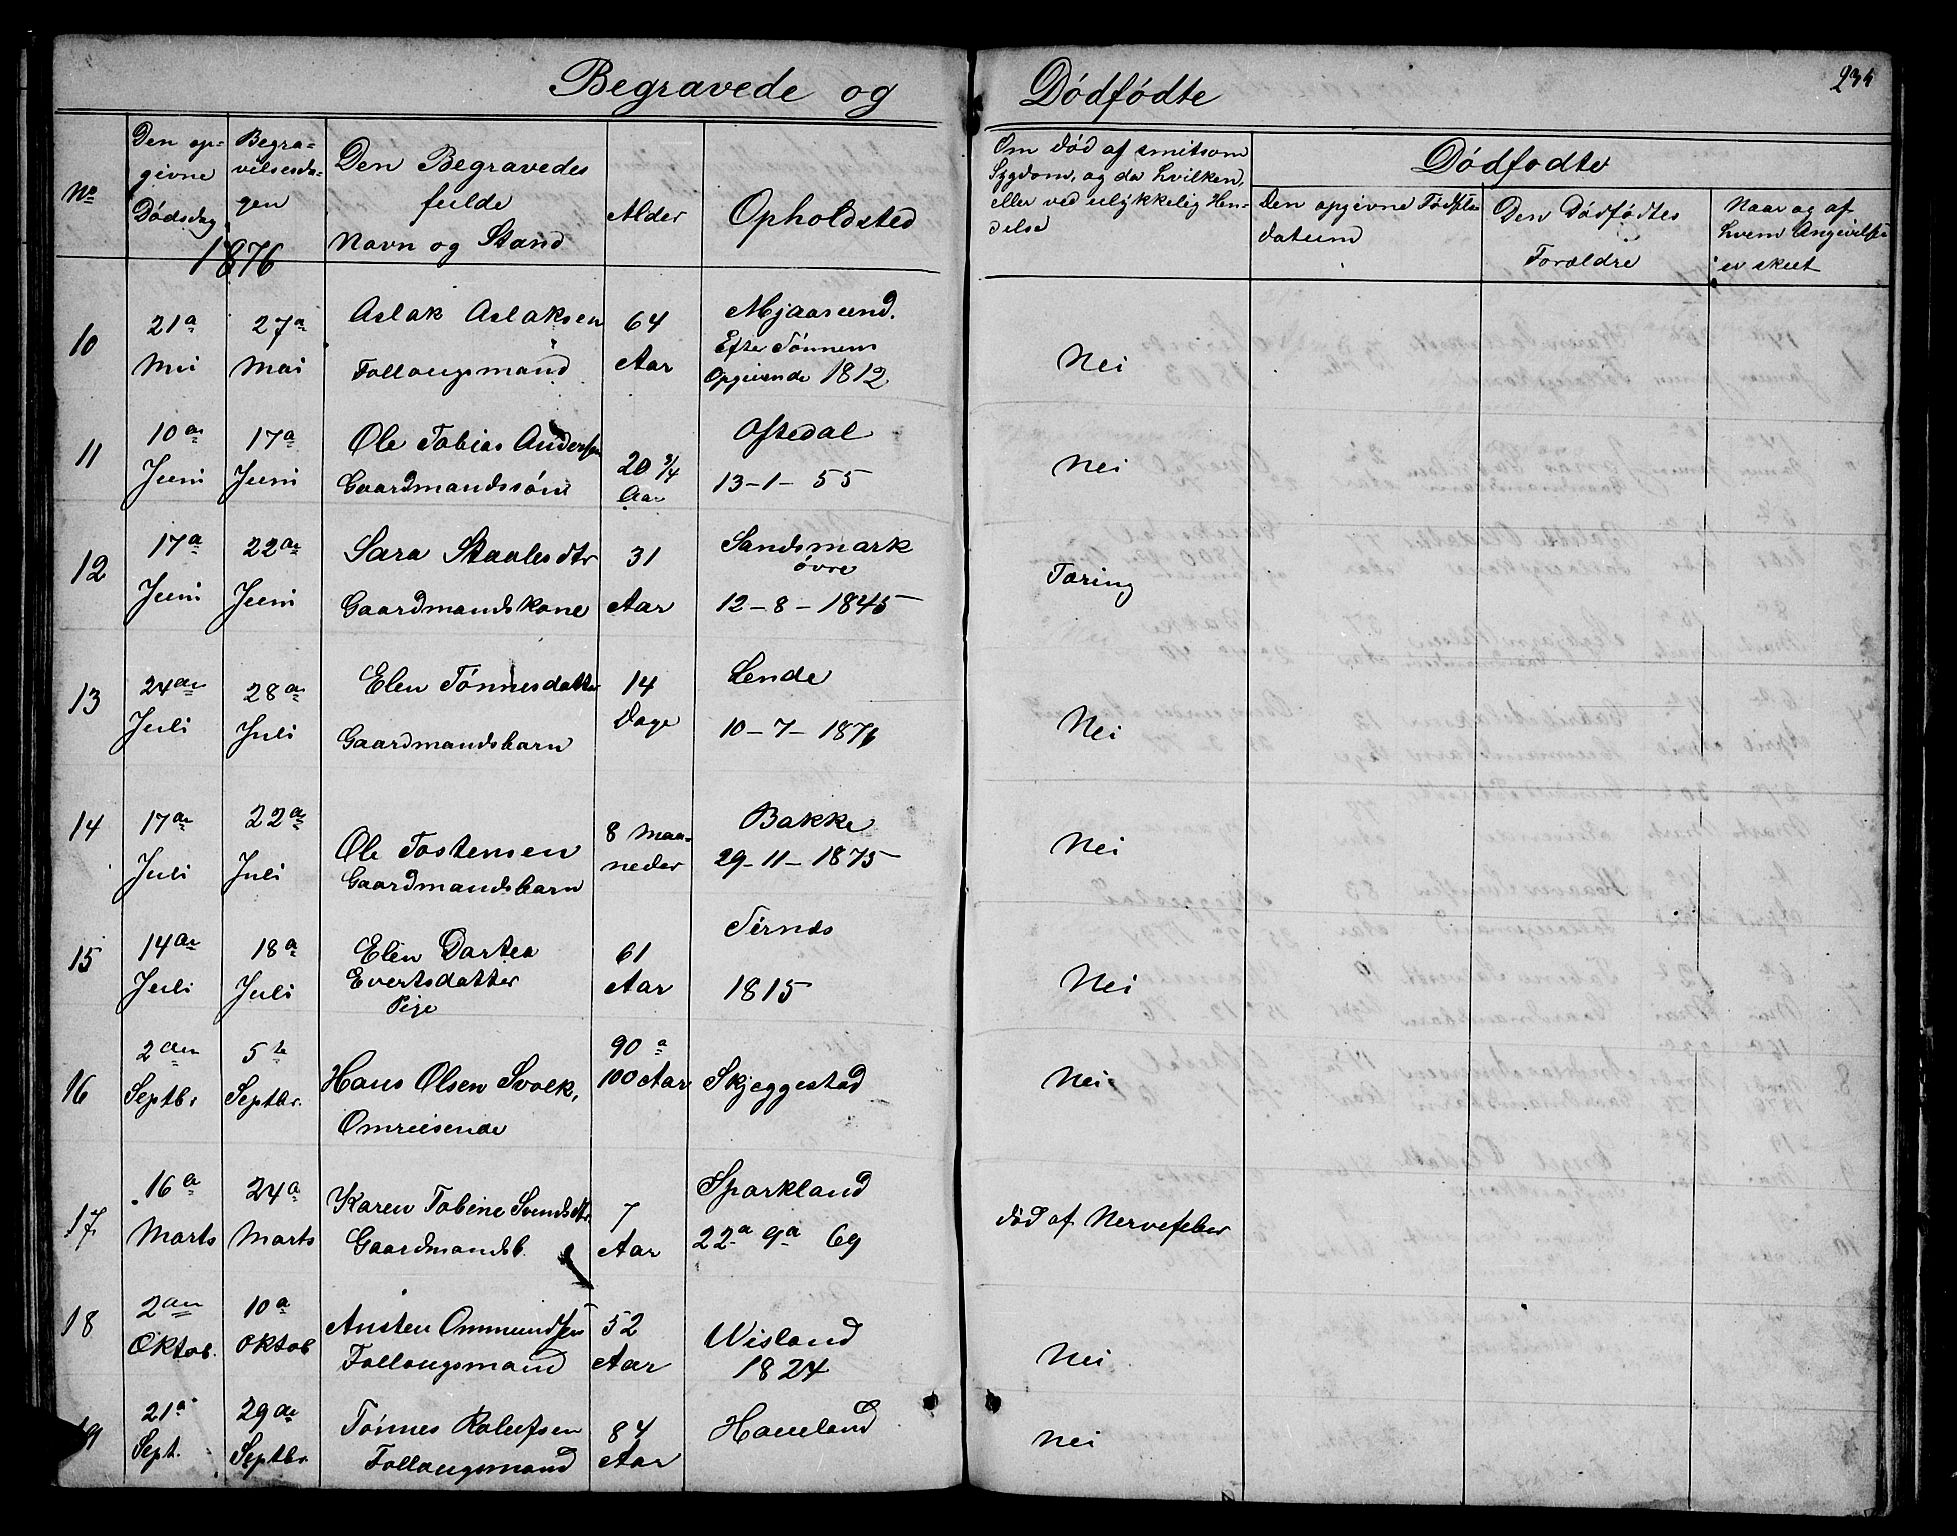 Begravede og Dödfödte
234
No
Den op-
givne
Dödsdag
Begra-
velsesda-
gen
Den Begravedes
fulde
Navn og Stand
Alder
Opholdsted
Om död af smitsom
Sygdom, og da hvilken,
eller ved ulykkelig Hen-
delse
Dödfodte
Den opgivne Födsels
datum
Den Dödfödtes
Forældre
Naar og af
hvem Angivelse
er skeet
1876
10
21a
Mai
27a
Mai
Aslak Aslaksen
Follaugsmand
64
Aar
Mjaasund.
Efter Tönnes
Opgivende 1812
Nei
11
10a
Juni
17a
Juni
Ole Tobias Andersen
Gaardmandssön
20 3/4
Aar
Oftedal
13-1-55
Nei
12
17a
Juni
22a
Juni
Sara Staalesdtr
Gaardmandskone
31
Aar
Sandsmark
övre
12-8-1845
Tæring
13
24an
Juli
28a
Juli
Elen Tönnesdatter
Gaardmandsbarn
14
Dage
Lende
10-7-1876
Nei
14
17an
Juli
22a
Juli
Ole Tostensen
Gaardmandsbarn
8 Maa-
neder
Bakke
29-11-1875
Nei
15
14an
Juli
18a
Juli
Elen Dortea
Evertsdatter
Pige
61
Aar
Tirnes
1815
Nei
16
2an
Septbr
5te
Septbr.
Hans Olsen Svolk,
Omreisende
90 a
100 Aar
Skjeggestad
Nei
17
16a
Marts
24a
Marts
Karen Tobine Svendsdtr.
Gaardmandsb.
7
Aar
Sparkland
22a 9a 69
död af Nervefeber
18
2an
Oktob.
10a
Oktob
Austen Ommundsen
Follaugsmand
52
Aar
Wisland
1824
Nei
19
21a
Sept.
29de
Septbr
Tönnes Rolufsen
Follaugsmand
84
Aar
Haueland
Nei